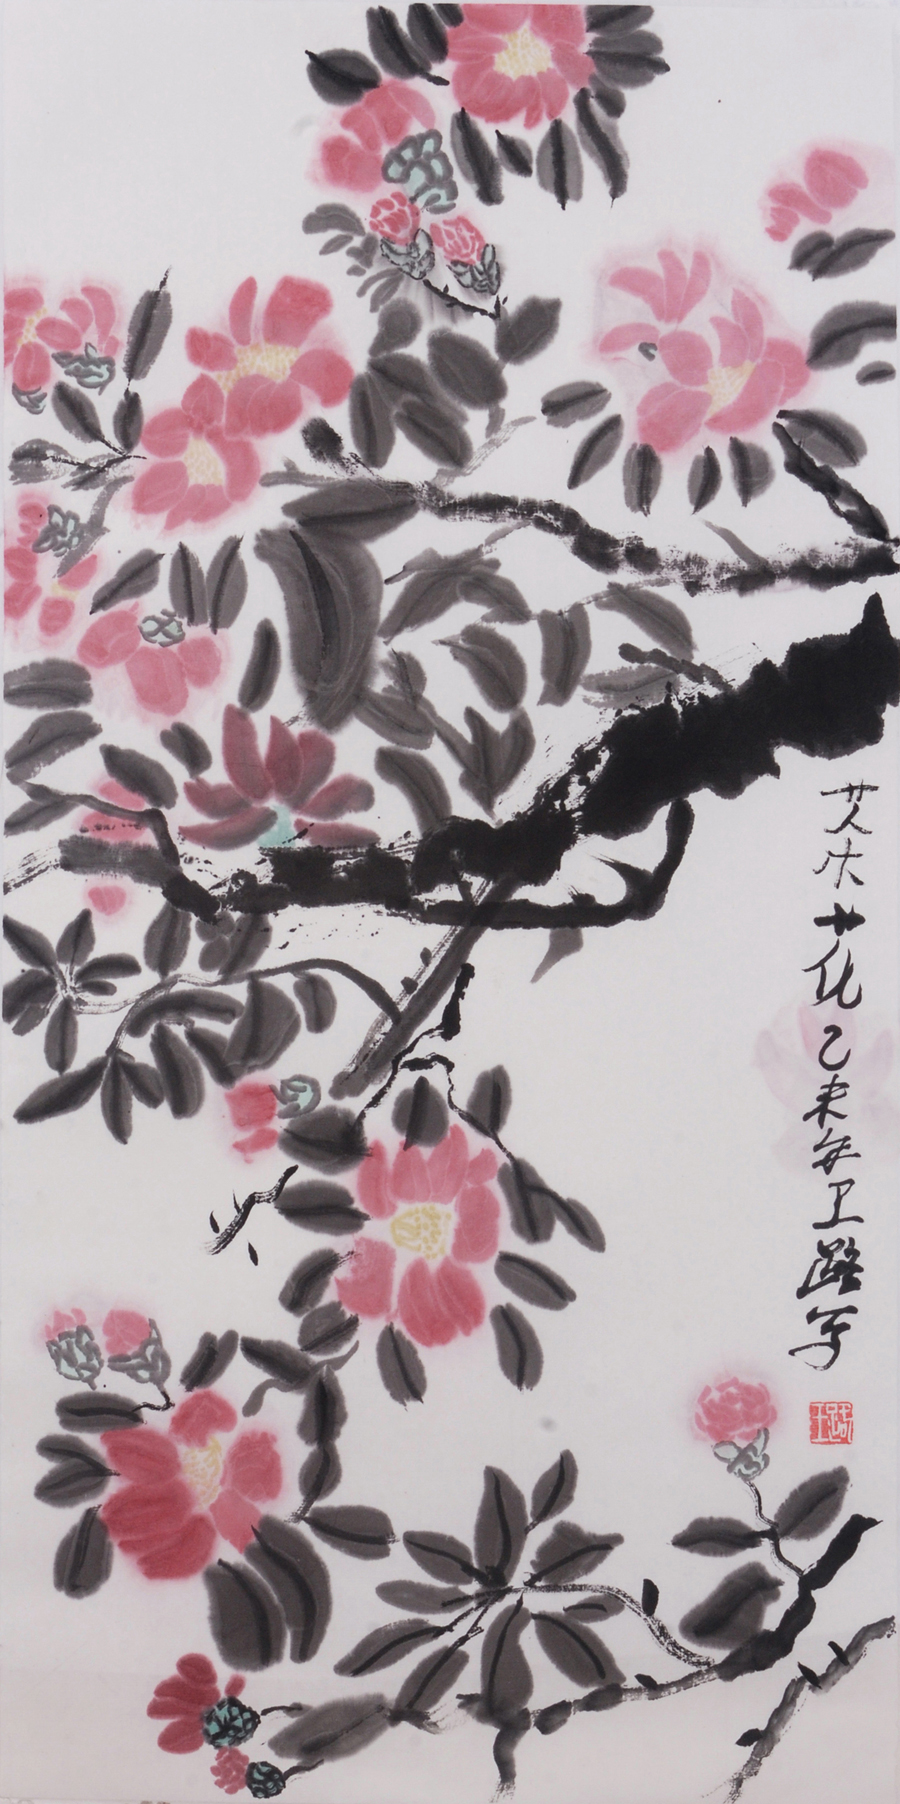 茶花乙未年卫路写